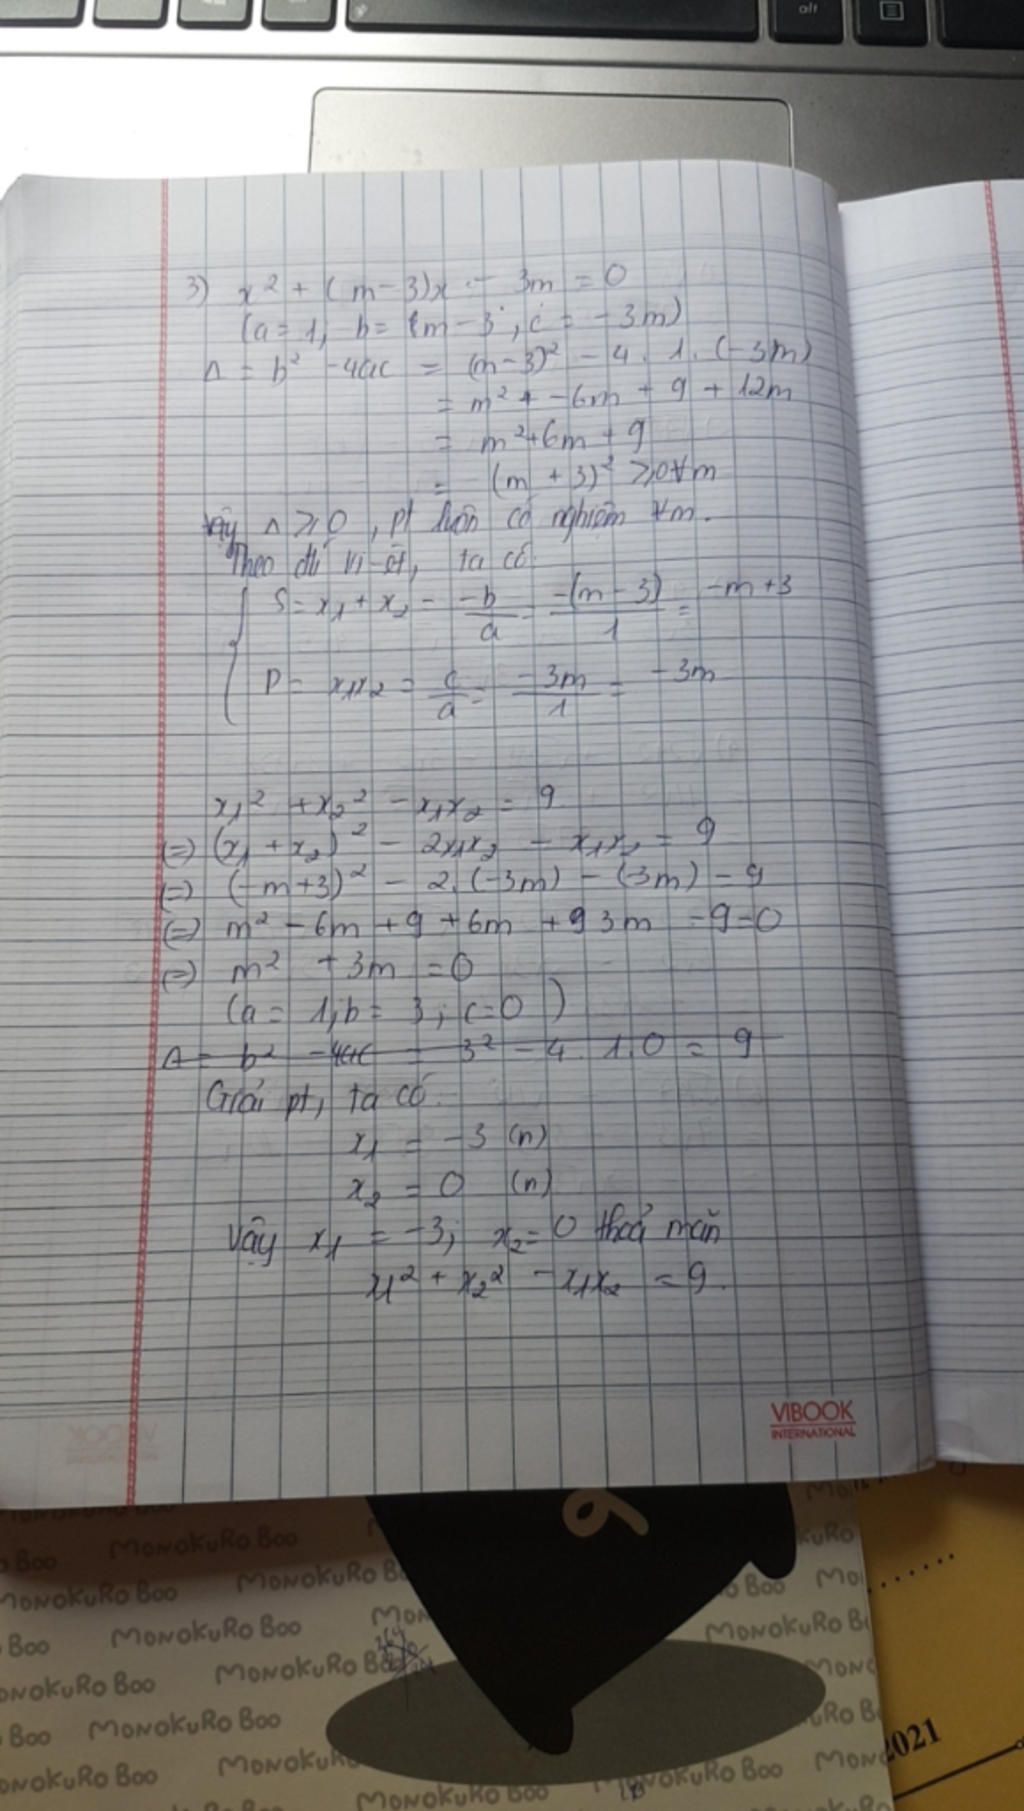 alt
3) x² + (m - 3)x - 3m = 0
(a = 1, b = m - 3, c = -3m)
Δ = b² - 4ac = (m - 3)² - 4. 1. (-3m)
= m² + - 6m + 9 + 12m
= m² + 6m + 9
= (m + 3)² ≥ 0 ∀m
Vậy Δ ≥ 0, pt luôn có nghiệm ∀m.
Theo đl Vi-ét, ta có:
S = x₁ + x₂ = -b/a = -(m - 3)/1 = -m + 3
P = x₁x₂ = c/a = -3m/1 = -3m
x₁² + x₂² - x₁x₂ = 9
(=) (x₁ + x₂)² - 2x₁x₂ - x₁x₂ = 9
(=) (-m + 3)² - 2. (-3m) - (-3m) = 9
(=) m² - 6m + 9 + 6m + 9 3m - 9 = 0
(=) m² + 3m = 0
(a = 1; b = 3; c = 0)
Δ = b² - 4ac = 3² - 4. 1. 0 = 9
Giải pt, ta có
x₁ = -3 (n)
x₂ = 0 (n)
Vậy x₁ = -3; x₂ = 0 thoả mãn
x₁² + x₂² - x₁x₂ = 9.
VIBOOK
INTERNATIONAL
MONOKURO BOO
MONOKURO BOO
MONOKURO BOO
MONOKURO BOO
MONOKURO BOO
MONOKURO BOO
MONOKURO BOO
2021
MONOKURO BOO
MONOKURO BOO